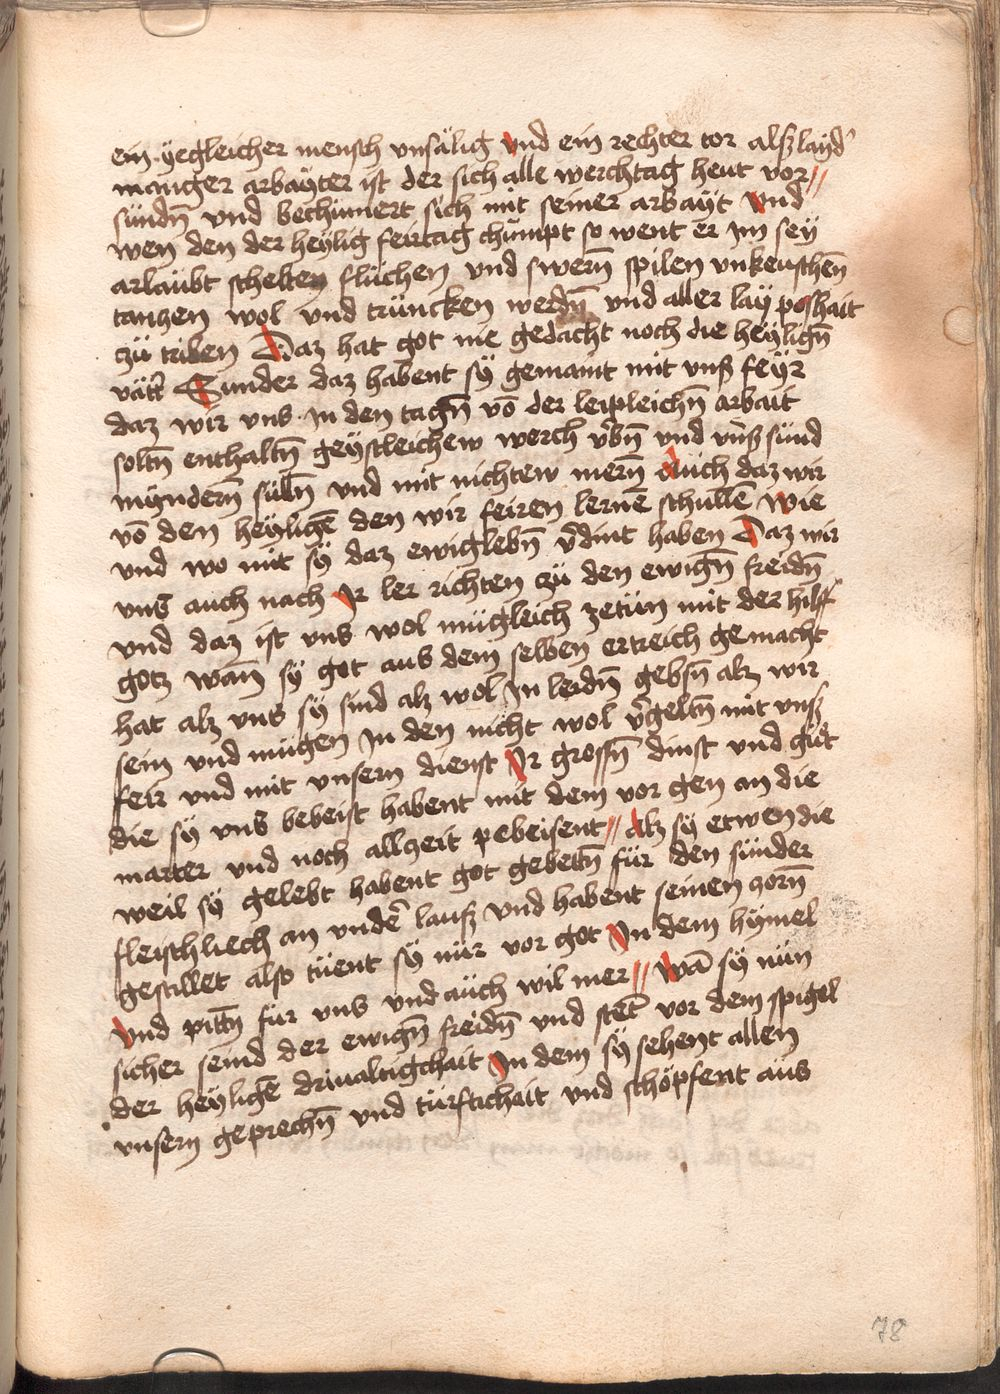 ein yegleicher mensch vnsälig vnd ein rechter tor alß layd͛
maniger arbayter ist der sich alle werchtag heut vor //
sündn̄ vnd bechümert sich mit seiner arbayt vnd
wen den der heylig feirtag chümpt so went er Im sey
arlaubt schelten flüchen vnd swern̄ spilen vnkeuschen̄
tanczen wol vnd trüncken werdn̄ vnd aller lay poshait
zü triben Daz hat got nie gedacht noch die heylign̄
vätt͛ Sunder daz habent sy gemaint mit vnß feyr
daz wir vns In den tagn̄ vō der leipleichn̄ arbait
soltn̄ enthaltn̄ geystleichew werch v̈bn̄ vnd vnß sünd
myndern̄ sülln̄ vnd mit nichtew mern̄ Auch daz wir
vō den heyligē den wir feiren lernē schullē wie
vnd wo mit sy daz ewiglebn̄ v͛dint haben Daz wir
vns auch nach Ir ler richten zü den ewign̄ freidn̄
vnd daz ist vns wol mügleich zetün mit der hilff
gotz wan̄ sy got aus dem selben ertreich gemacht
hat alz vns sy sind alz wol In leidn̄ gebsn̄ alz wir
sein vnd mügen In den nicht wol v͛geltn̄ mit vnß
feir vnd mit vnsern dienst Ir grossn̄ dinst vnd güt
die sy vns bebeist habent mit dem vor gen an die
marter vnd noch allzeit pebeisent // Alz sy etwen die
weil sy gelebt habent got gebettn̄ für den sünder
fleischliech an vndē lauß vnd habent seinen zorn̄
gestillet also tüent sy nür vor got In dem hymel
vnd pittn̄ für vns vnd auch wil mer // Wā sy nün
sicher seind der ewign̄ freidn̄ vnd stēt vor dem spigel
der heyligē driualtigchait In dem sy sehent allen
vnsern geprechn̄ vnd türftichait vnd schöpfent aus
78